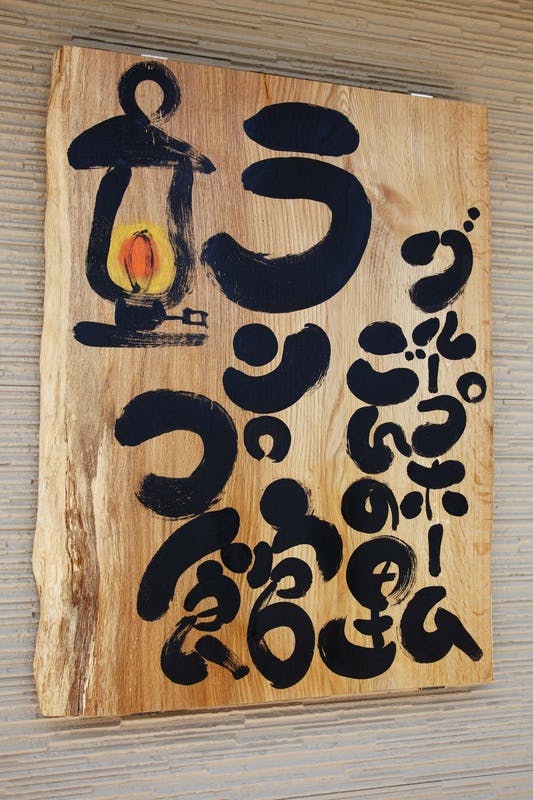 グループホーム
ごんの里
ランプ館